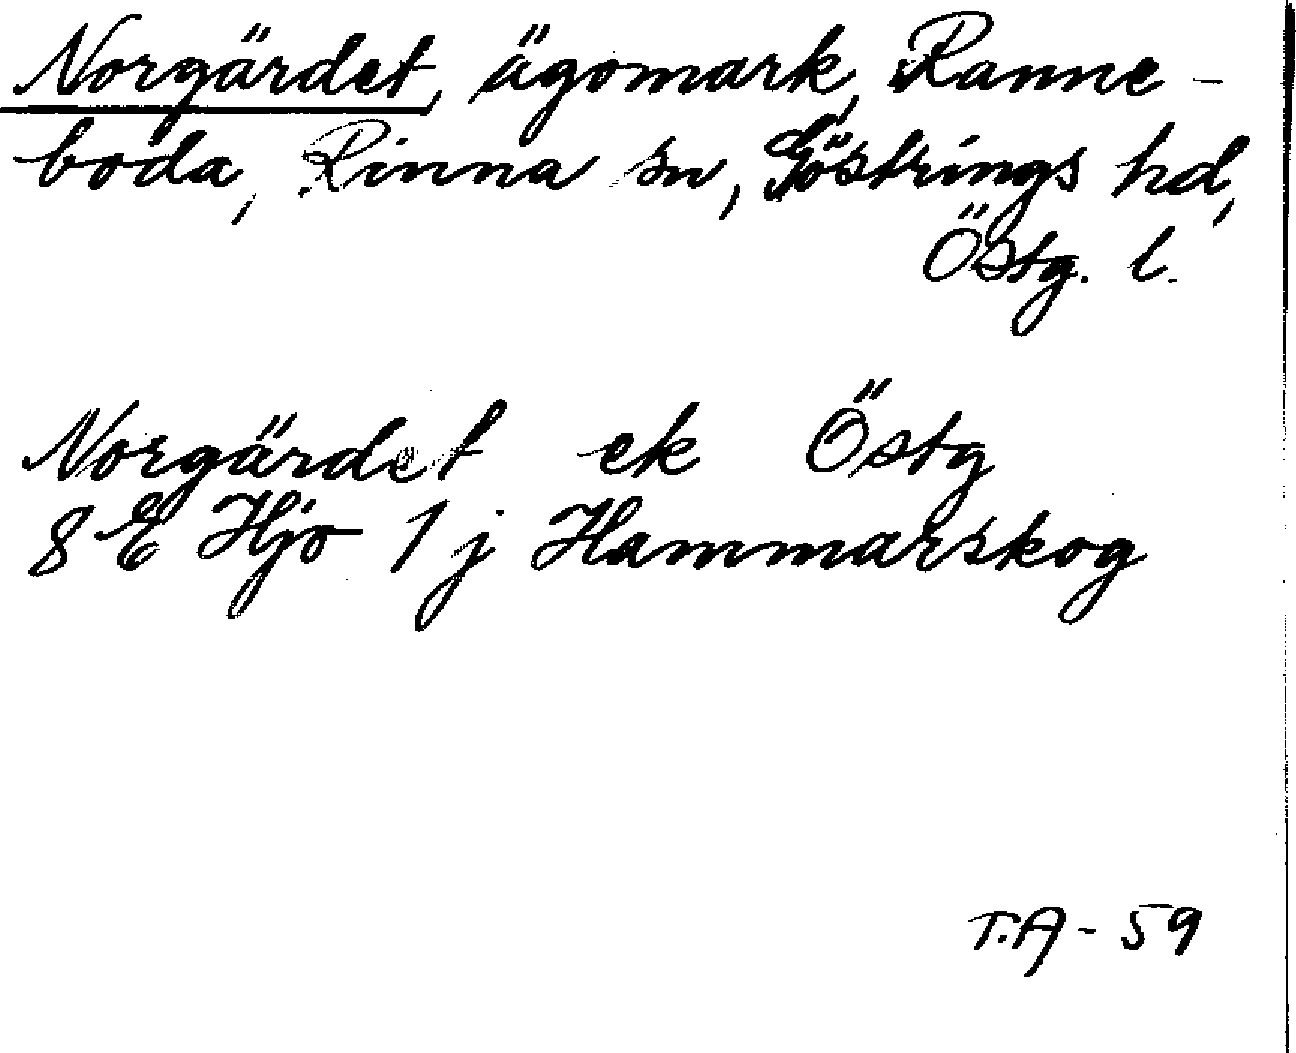 Norgärdet, ägomark, Ranne-
boda, Rinna sn, Göstrings hd,
Östg. l.
Norgärdet ek Östg
8 E Hjo 1 j Hammarskog
T.A - 59